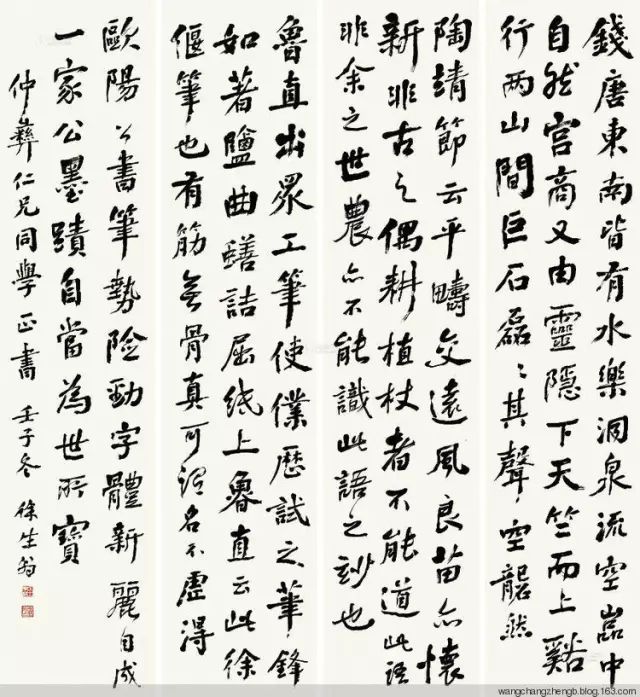 錢唐東南皆有水樂洞泉流空嵓中
自然宮商又由靈隱下天竺而上谿
行兩山間巨石磊〻其聲空䶬然
陶靖節云平疇交遠風良苗亦懷
新非古之偶耕植杖者不能道此語
非余之世農亦不能識此語之玅也
魯直出眾工筆使僕歷試之筆鋒
如著鹽曲蟮詰屈紙上魯直云此徐
偃筆也有筋無骨真可謂名不虛得
歐陽公書筆勢險勁字體新麗自成
一家公墨蹟自當為世所寶
仲彝仁兄同學正書 壬子冬 徐生翁
wangchangzhengb.blog.163.com